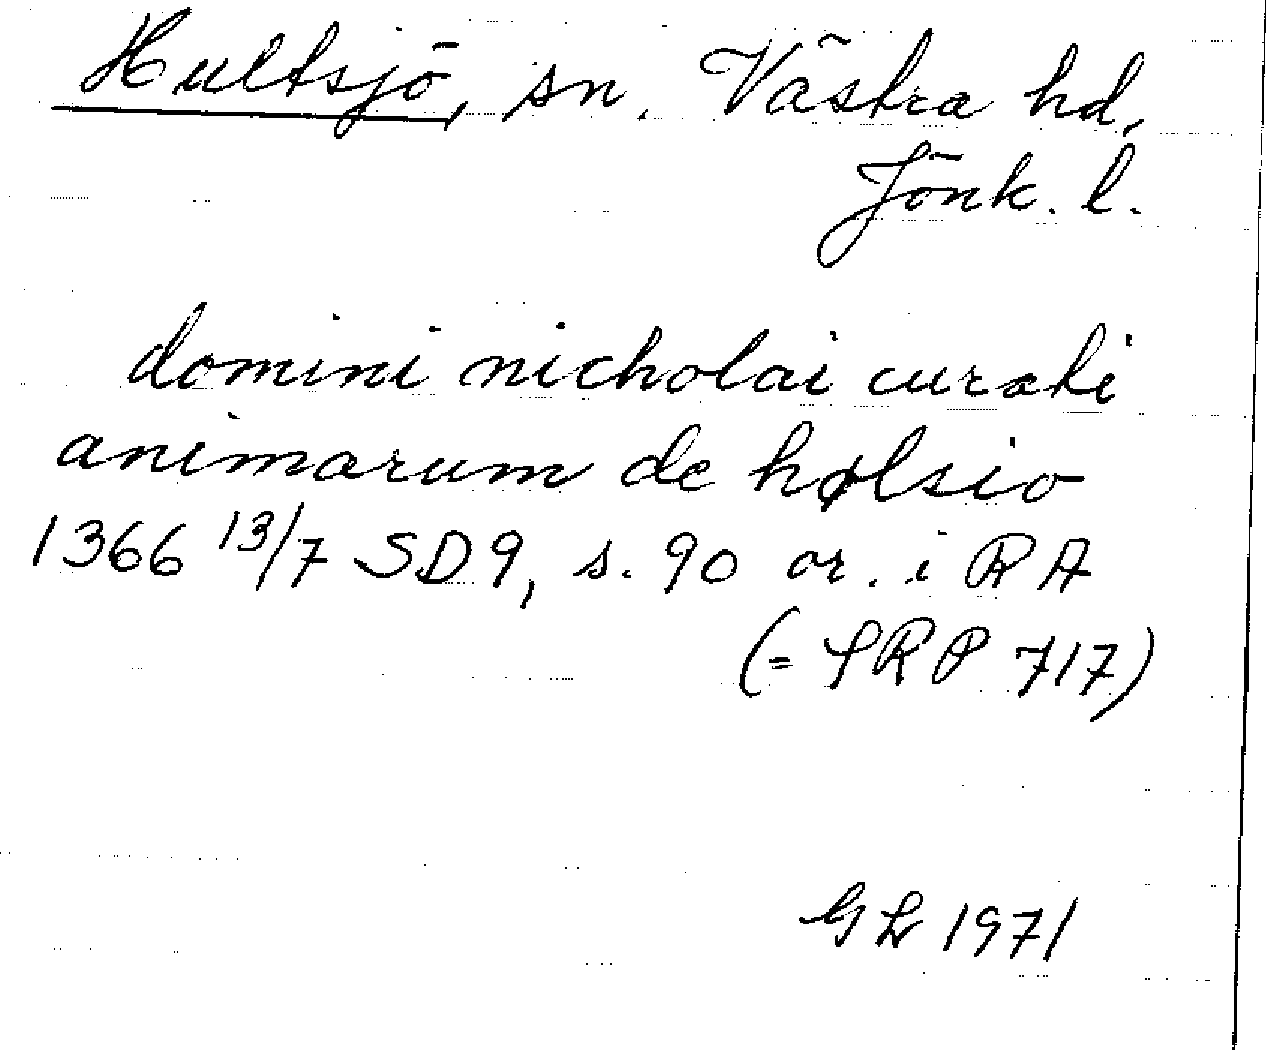 Hultsjö, sn. Västra hd,
Jönk. l.
domini nicholai curati
animarum de hølsio
1366 13/7 SD9, s. 90 or. i RA
(= SRP 717)
GL 1971